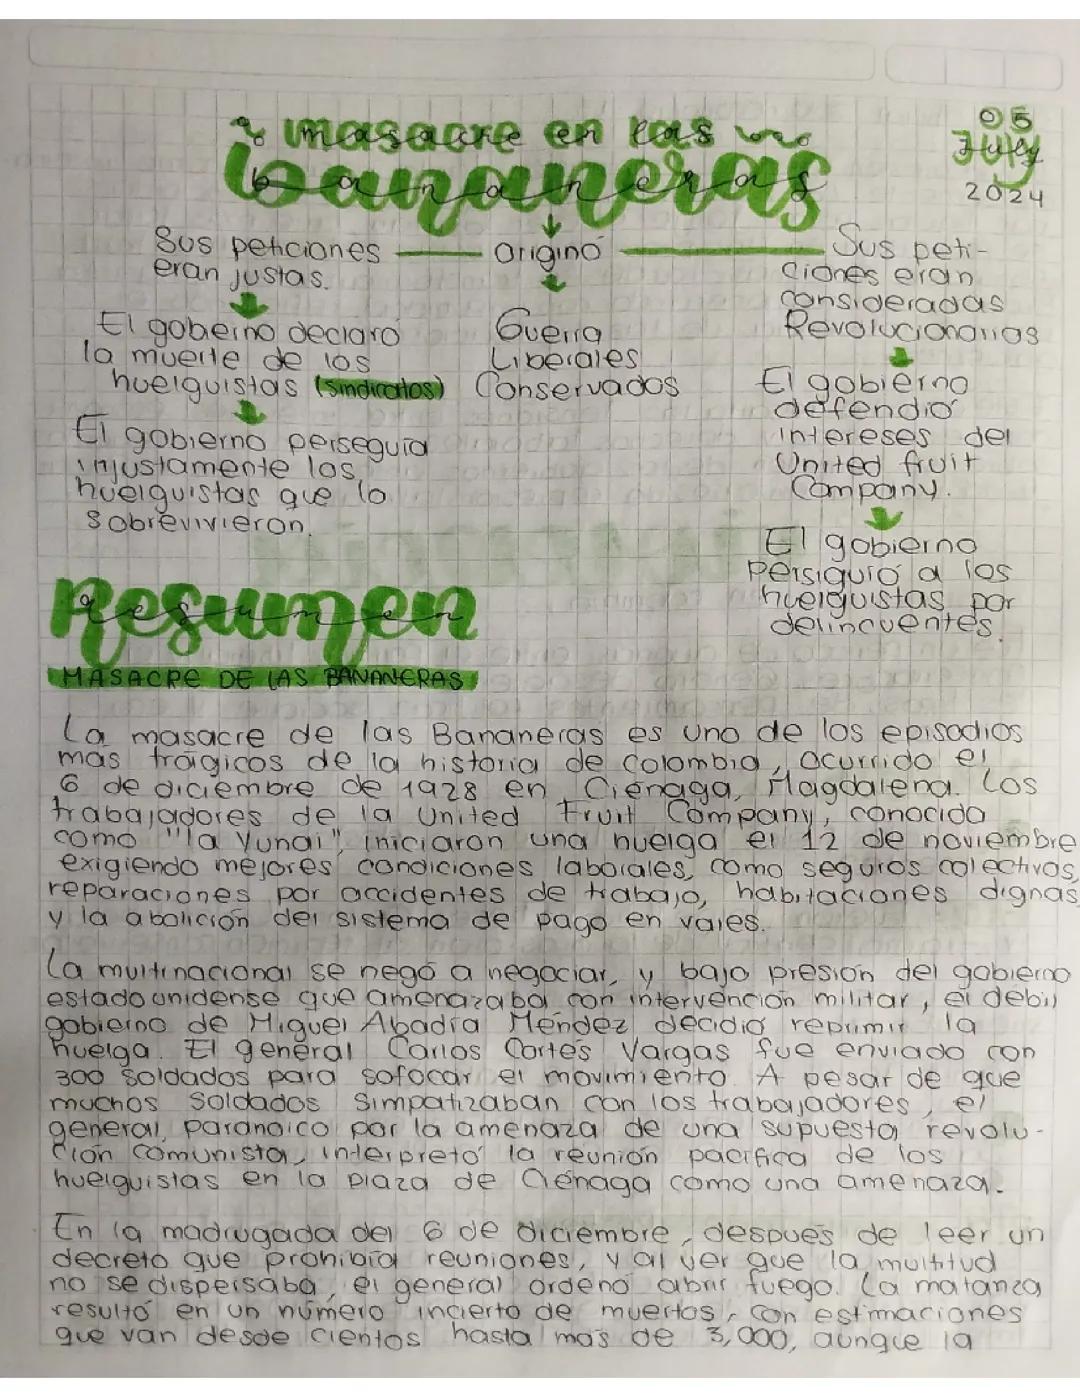 masacre en las
bananeras
05
July
2024
Sus peticiones
eran justas.
El gobierno declaró
la muerte de los
huelguistas (sindicatos)
El gobierno perseguía
injustamente los
huelguistas que lo
sobrevivieron.
originó
Guerra
Liberales
Conservados
Sus peti-
ciones eran
consideradas
Revolucionarias
El gobierno
defendió
intereses del
United fruit
Company.
El gobierno
Persiguió a los
huelguistas por
delincuentes.
Resumen
MASACRE DE LAS BANANERAS
La masacre de las Bananeras es uno de los episodios
más trágicos de la historia de Colombia, ocurrido el
6 de diciembre de 1928 en Ciénaga, Magdalena. Los
trabajadores de la United Fruit Company, conocida
como "la Yunai", iniciaron una huelga el 12 de noviembre
exigiendo mejores condiciones laborales, como seguros colectivos,
reparaciones por accidentes de trabajo, habitaciones dignas
y la abolición del sistema de pago en vales.
La multinacional se negó a negociar, y bajo presión del gobierno
estadounidense que amenazaba con intervención militar, el débil
gobierno de Miguel Abadía Méndez decidió reprimir la
huelga. El general Carlos Cortés Vargas fue enviado con
300 soldados para sofocar el movimiento. A pesar de que
muchos soldados simpatizaban con los trabajadores, el
general, paranoico por la amenaza de una supuesta revolu-
ción comunista, interpretó la reunión pacífica de los
huelguistas en la plaza de Ciénaga como una amenaza.
En la madrugada del 6 de diciembre, después de leer un
decreto que prohibía reuniones, y al ver que la multitud
no se dispersaba, el general ordenó abrir fuego. La matanza
resultó en un número incierto de muertos, con estimaciones
que van desde cientos hasta más de 3,000, aunque la